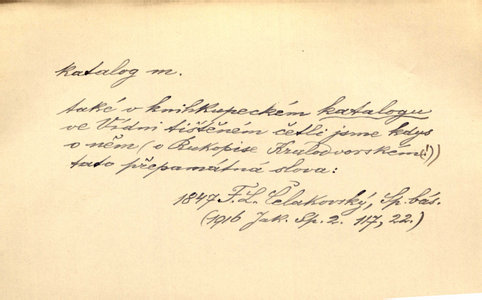 katalog m.
také v knihkupeckém katalogu
ve Vídni tištěném četli jsme kdys
o něm (o Rukopise Královédvorském(!))
tato přepamátná slova:
1847 F. L. Čelakovský, Sp. bás.
(1916 Jak. Sp. 2. 117, 22.)